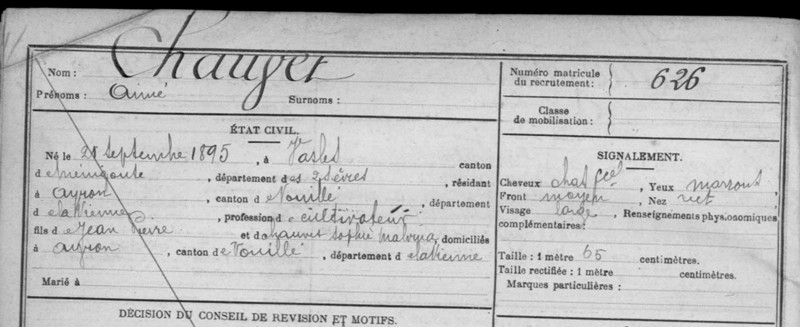 Nom : Chauvet
Prénoms : Aimé Surnoms :
ÉTAT CIVIL.
Né le 21 Septembre 1895, à Vasles canton
de Ménigoute, département des 2 Sèvres, résidant
à Ayron, canton de Vouillé, département
de la Vienne, profession de cultivateur
fils de Jean Pierre et de Sophie Malvina, domiciliés
à Ayron, canton de Vouillé, département de la Vienne
Marié à
DÉCISION DU CONSEIL DE REVISION ET MOTIFS.
Numéro matricule
du recrutement : 626
Classe
de mobilisation :
SIGNALEMENT.
Cheveux chat , Yeux marrons
Front moyen , Nez rect
Visage large , Renseignements physionomiques
complémentaires :
Taille : 1 mètre 65 centimètres.
Taille rectifiée : 1 mètre centimètres.
Marques particulières :